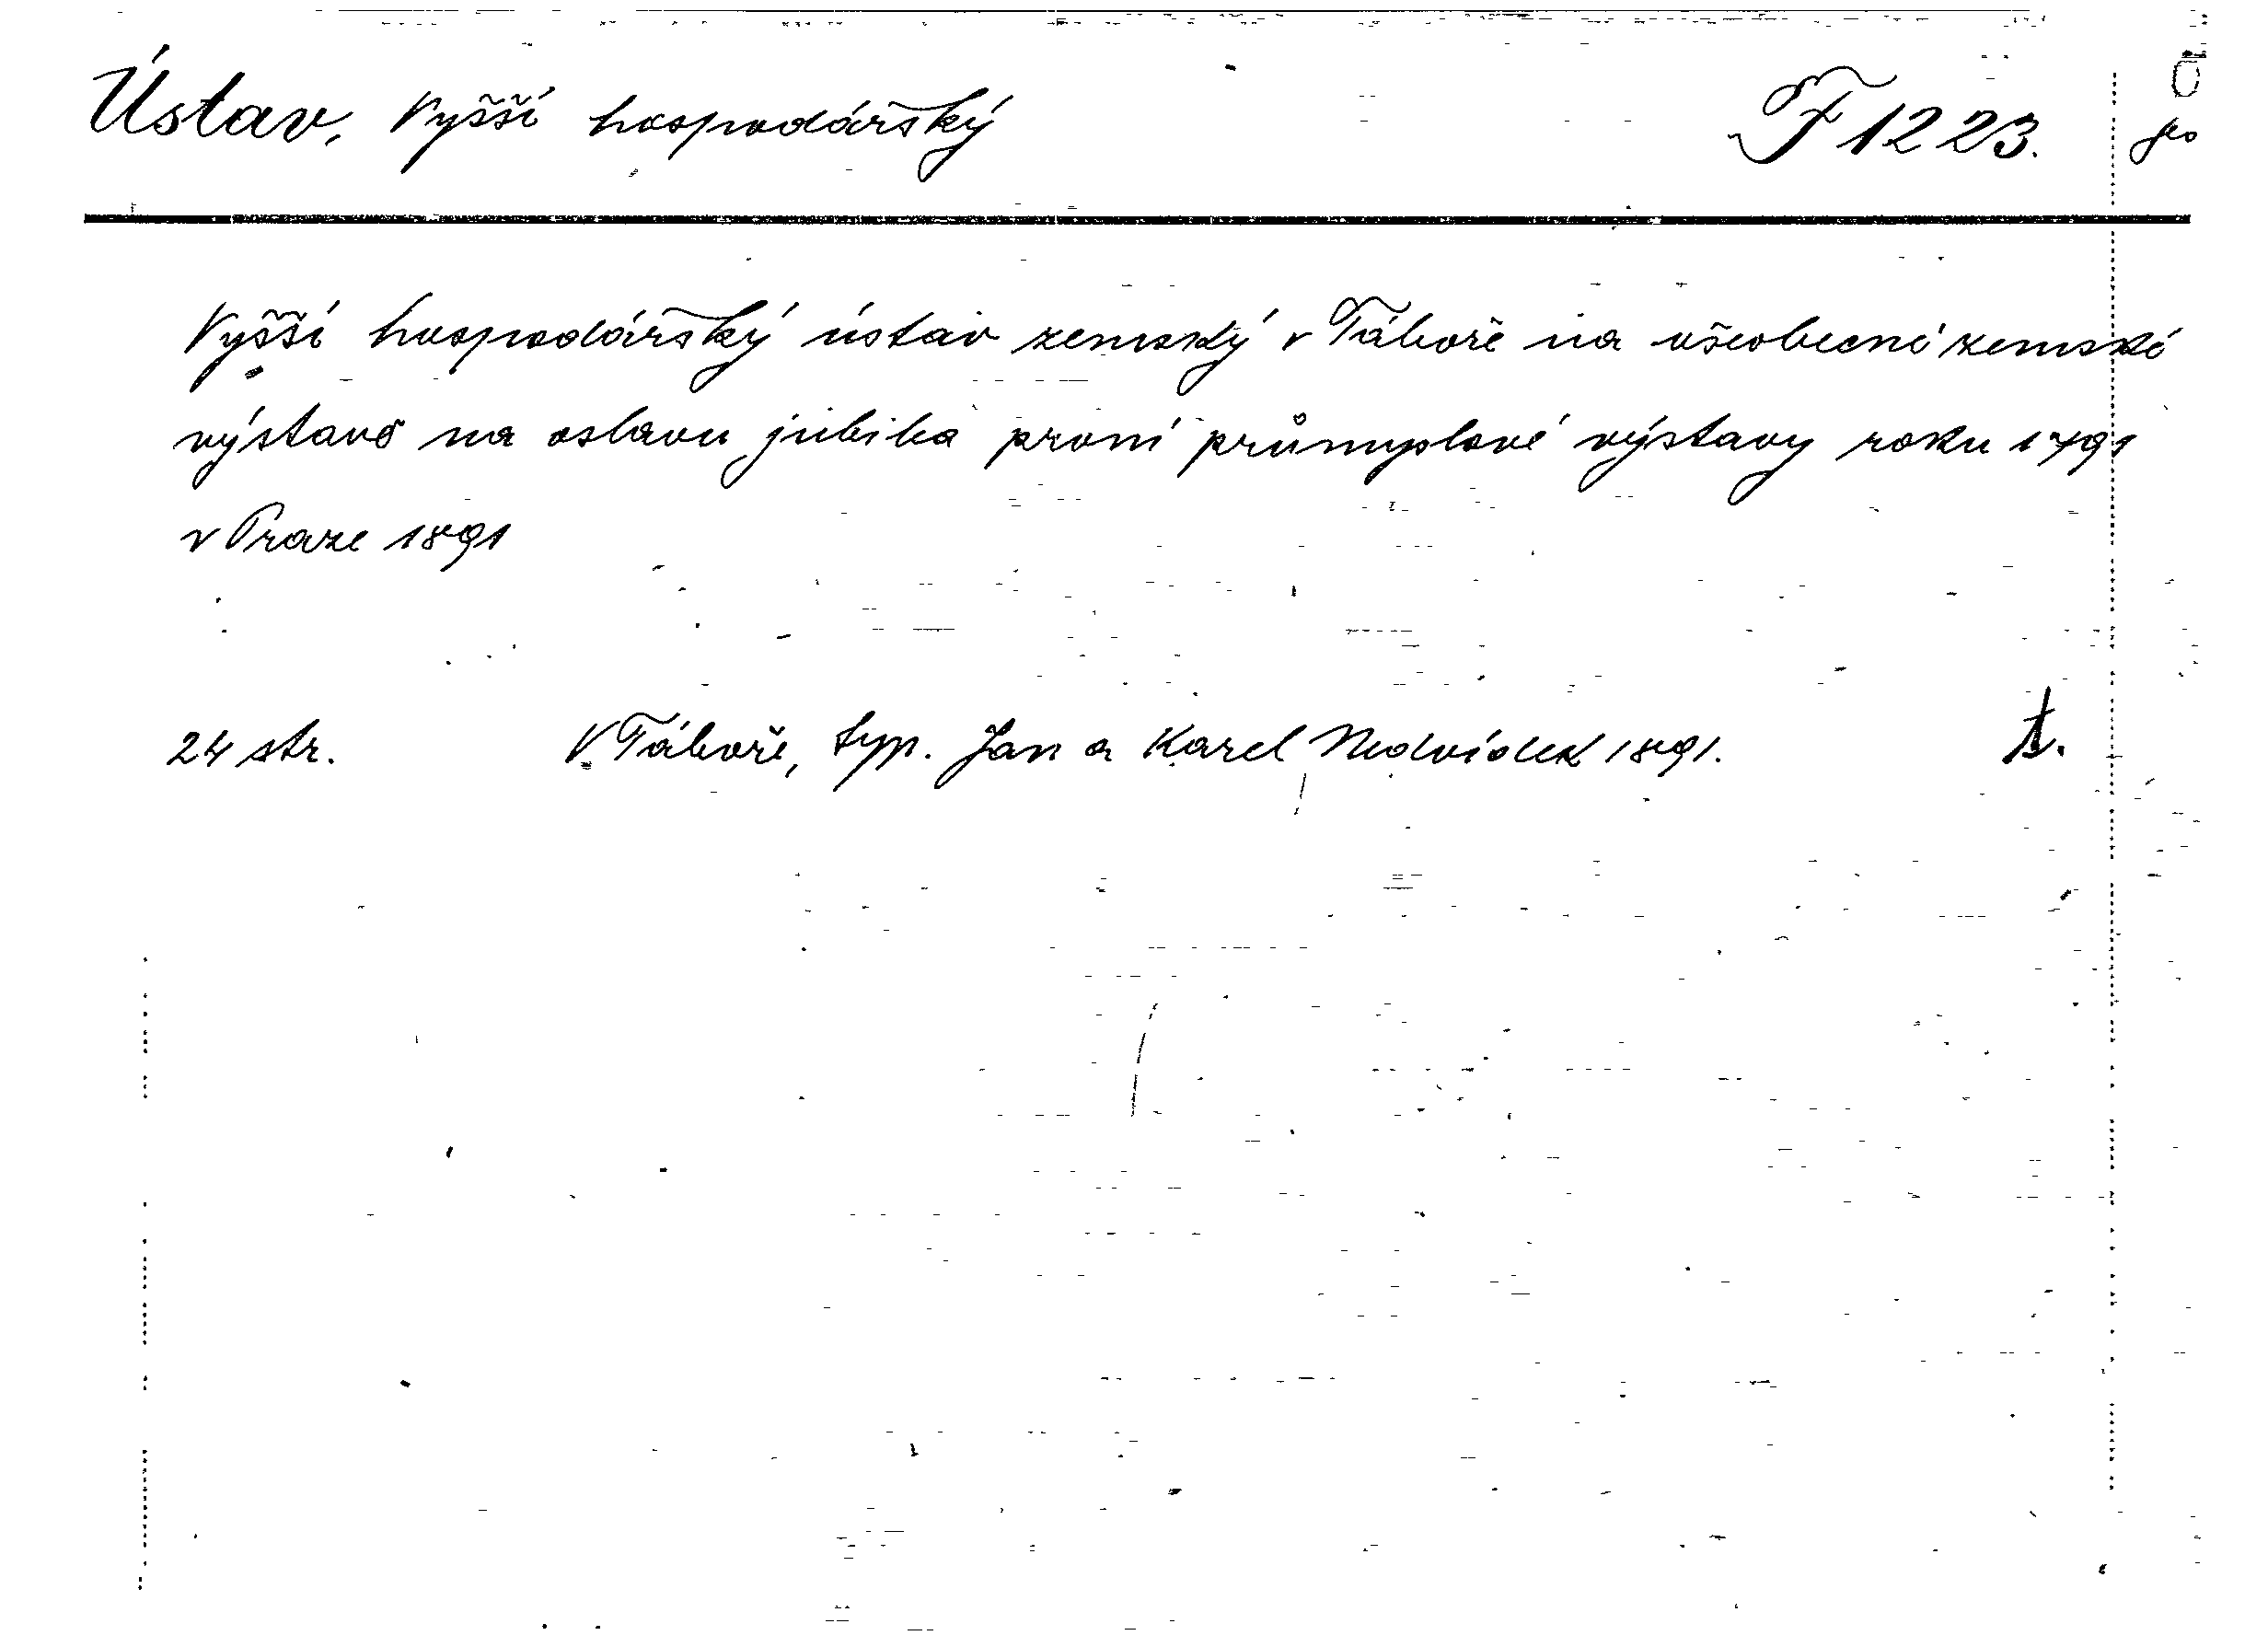 Ústav, Vyšší hospodářský F 1223.
Vyšší hospodářský ústav zemský v Táboře na všeobecné zemské
výstavě na oslavu jubilea první průmyslové výstavy roku 1791
v Praze 1891
24 str. V Táboře, typ. Jan a Karel Nedvídek 1891. t.